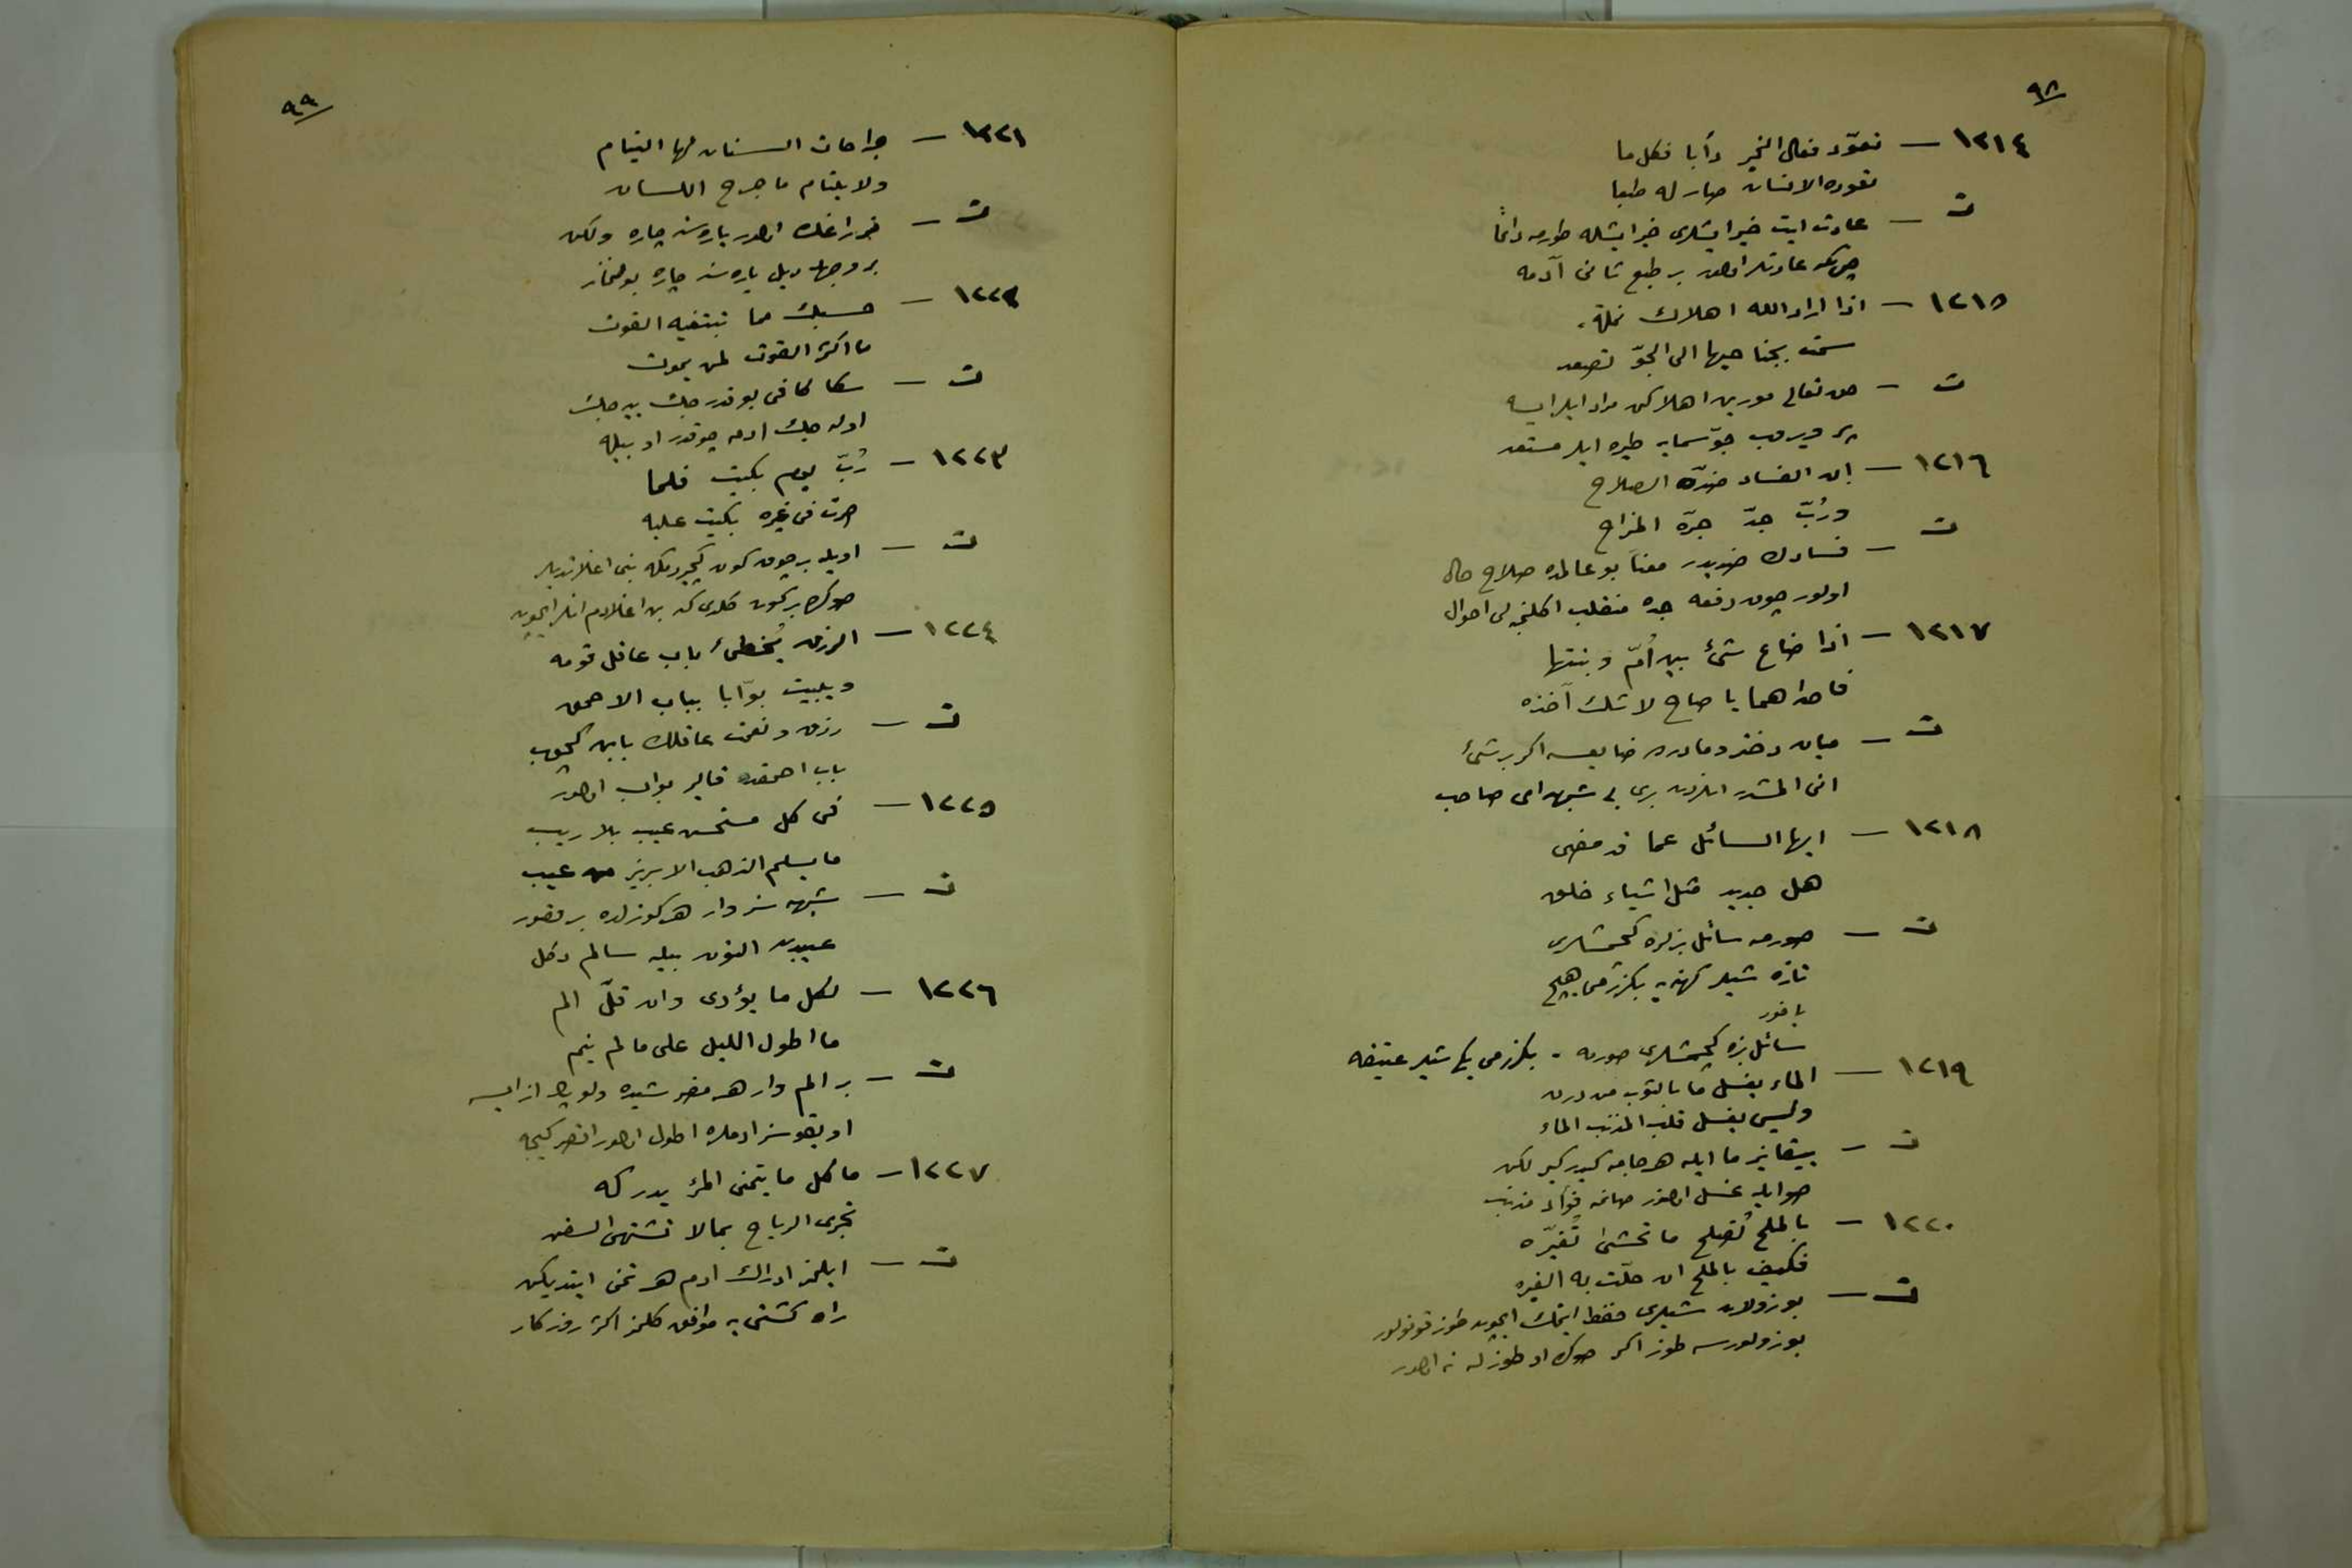 ٩٨
١٢١٤ — تعوّد فعال الخير دأبا فكل ما
تعوده الانسان صار له طبعا
ت — عادت ايت خير ايشلرى خير ايشله طورمه دائما
چونكه عادتلر اولور بر طبع ثانى آدمه
١٢١٥ — اذا اراد الله اهلاك نملة
سمت بجناحيها الى الجوّ تصعد
ت — حق تعالى مورين اهلاكن مراد ايلر ايسه
پر ويروب جوّ سمايه طيره ايلر مستعد
١٢١٦ — ان الفساد ضدّه الصلاح
ورُبّ جدّ جرّه المزاح
ت — فسادك ضديدر معناً بو عالمده صلاح حال
اولور چوق دفعه جده منقلب اكلنجه لى احوال
١٢١٧ — اذا ضاع شئ بين اُمّ وبنتها
فاحداهما يا صاح لا شك آخذه
ت — ميان دختر ومادرده ضايعسه اكر بر شئ
انى المشدر انلردن برى بى شبهه اى صاحب
١٢١٨ — ايها السائل عما قد مضى
هل جديد مثل اشياء خلق
ت — صورمه سائل بزلره كچمشلرى
تازه شيلر كهنه يه بكزرمى هيچ
ياخود
سائل بزه كچمشلرى صورمه . بكزرمى يكى شيلر عتيقه
١٢١٩ — الماء يغسل ما بالثوب من درن
وليس يغسل قلب المذنب الماء
ت — ييقانير ما ايله هر جامه كيدر كير لكن
صو ايله غسل اولنور صانمه فؤاد مذنب
١٢٢٠ — بالملح تُصلح ما تخشى تُغيّره
فكيف بالملح ان حلّت به الغير
ت — بوزولان شيلرى حفظ ايتمك ايچون طوز قونولور
بوزولورسه طوز اكر صوكره او طوزله نه اولور
٩٩
١٢٢١ — جراحات السنان لها التيام
ولا يلتام ما جرح اللسان
ت — مزراغك اولور ياره سنه چاره ولكن
بر وجهله ديل ياره سنه چاره بولنماز
١٢٢٢ — حسبك مما تبتغيه القوت
ما اكثر القوت لمن يموت
ت — سكا كافى بو قدر
اوله جك ادمه چوقدر او بيله
١٢٢٣ — رُبّ يوم بكيت فلما
صرت فى غيره بكيت عليه
ت — اويله بر چوق كون كچيردمكه بنى اغلاتديلر
صوكره بركون كلدى كه بن اغلادم انلر ايچون
١٢٢٤ — الرزق يُخطئ باب عاقل قومه
ويبيت بوّابا بباب الاحمق
ت — رزق ونعمت عاقلك بابن كچوب
باب احمقده قالير بواب اولور
١٢٢٥ — فى كل مستحسن عيب بلا ريب
ما يسلم الذهب الابريز من عيب
ت — شبهه سز وار هر كوزلده بر قصور
عيبدن التون بيله سالم دكل
١٢٢٦ — لكل ما يؤذى وان قلّ الم
ما اطول الليل على ما لم ينم
ت — بر الم وار هر مضر شيده ولو پك از ايسه
اويقوسز ادملره اطول اولور اقصر كيجه
١٢٢٧ — ما كل ما يتمنى المرء يدركه
تجرى الرياح بما لا تشتهى السفن
ت — ايلمز ادراك ادم هر تمنى ايتديكن
راه كشتى يه موافق كلمز اكثر روزكار